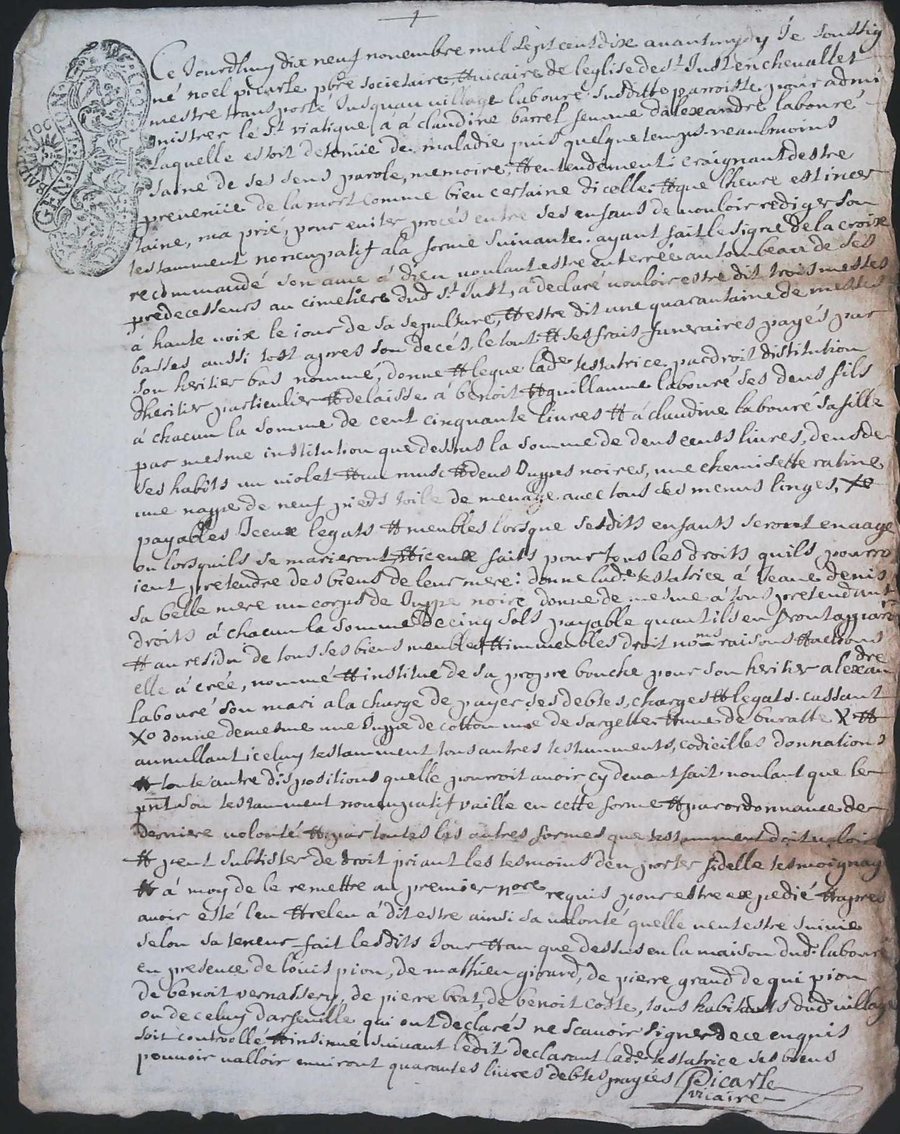 Ce Jourdhuy dix neuf novembre mil sept cent dix avant mydy Je soussig
né noel picarle pbre societaire et vicaire de leglise de st Just en chevallet
mestre transporté Jusquau village labouré susditte parroisse pour admi
nistrer le St viatique à claudine barrel femme dalexandre labouré
laquelle estoit detenüe de maladie puis quelque temps neaulmoins
saine de ses sens parole, memoire, et entendement: craignant destre
prevenüe de la mort comme bien certaine dicelle et que lheure est incer
taine, ma prié, pour eviter procés entre ses enfans de vouloir rediger son
testamment noncupatif a la forme suivante. ayant fait le signe de la croix
recommandé son ame à dieu voulant estre enterrée au tombeau de ses
predecesseurs au cimetiere dud St Just, a declaré vouloir estre dit trois messes
à haute voix le jour de sa sepulture, et estre dit une quarantaine de messes
basses aussi tost apres son decés, le tout et ses frais funeraires payés par
son heritier bas nommé, donne et legue lade testatrice par droit distitution
dheritier particulier et delaisse à benoit et guillaume labouré ses deus fils
à chacun la somme de cent cinquante livres et à claudine labouré sa fille
par mesme institution que dessus la somme de deus cents livres, deus de
ses habits un violet et un musc et deus Juppes noires, une chemisette ratine
une nappe de neuf pieds toile de menage avec tous ses menus linges, Xo
payables Iceux legats et meubles lorsque sesdits enfants seront en aage
ou lorsquils se marieront et iceux faits pour tous les droits quils pourro
ient pretendre des biens de leur mere: donne lade testatrice à Jeane denis
sa belle mere un corps de Juppe noire, donne de mesme a tous pretendants
droits à chacun la somme de cinq sols payable quant ils en
et au residu de tous ses biens meubles et immeubles droit noms raisons et actions
elle à crée, nommé et institue de sa propre bouche pour son heritier alexandre
labouré son mari a la charge de payer ses debtes, charges et legats. cassant
Xo donne de mesme une Juppe de cottonnine de sargette et une de buratte X et
annullant iceluy testamment tous autres testamments, codicilles donnations
et toute autre dispositions quelle pourroit avoir cy devant fait voulant que le
pnt son testamment noncupatif vaille en cette forme et par ordonnance de
derniere volonté et par toutes les autres formes que testamment doit valoir
et peut subsister de droit priant les tesmoins den porter fidelle tesmoignage
et à moy de le remettre au premier nore requis pour estre expedié et apres
avoir esté leu et releu à dit estre ainsi sa volonté quelle veut estre suivie
selon sa teneur fait lesdits Jour et an que dessus en la maison dud. labouré
en presence de louis pion, de mathieu girard, de pierre grand de qui pion
de benoit vernassery, de pierre brat, de benoit coste, tous habitants dud village
ou de celuy darfeuille qui ont declarés ne scavoir signer de ce enquis
soit controllé et insinué suivant ledit declarant lade testatrice ses biens
pouvoir valloir environt quarantes livres debtes payées Picarle
vicaire